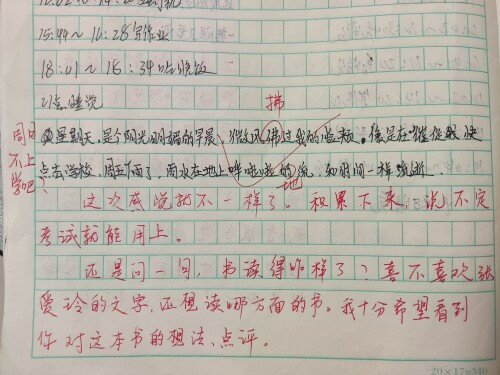 15:44～16:28写作业
18:01～18:34吃晚饭
21点睡觉
拂
星期天,是个阳光明媚的早晨,微风沸过我的脸颊,像是在催促我快
点去学校,周五下雨了,雨水在地上哗啦啦的流,如时间一样流逝。
地
周日
不上
学吧?
这次感觉就不一样了。积累下来,说不定
考试就能用上。
还是问一句,书读得咋样了?喜不喜欢张
爱玲的文字,还想读哪方面的书。我十分希望看到
你对这本书的想法、点评。
20×17=340